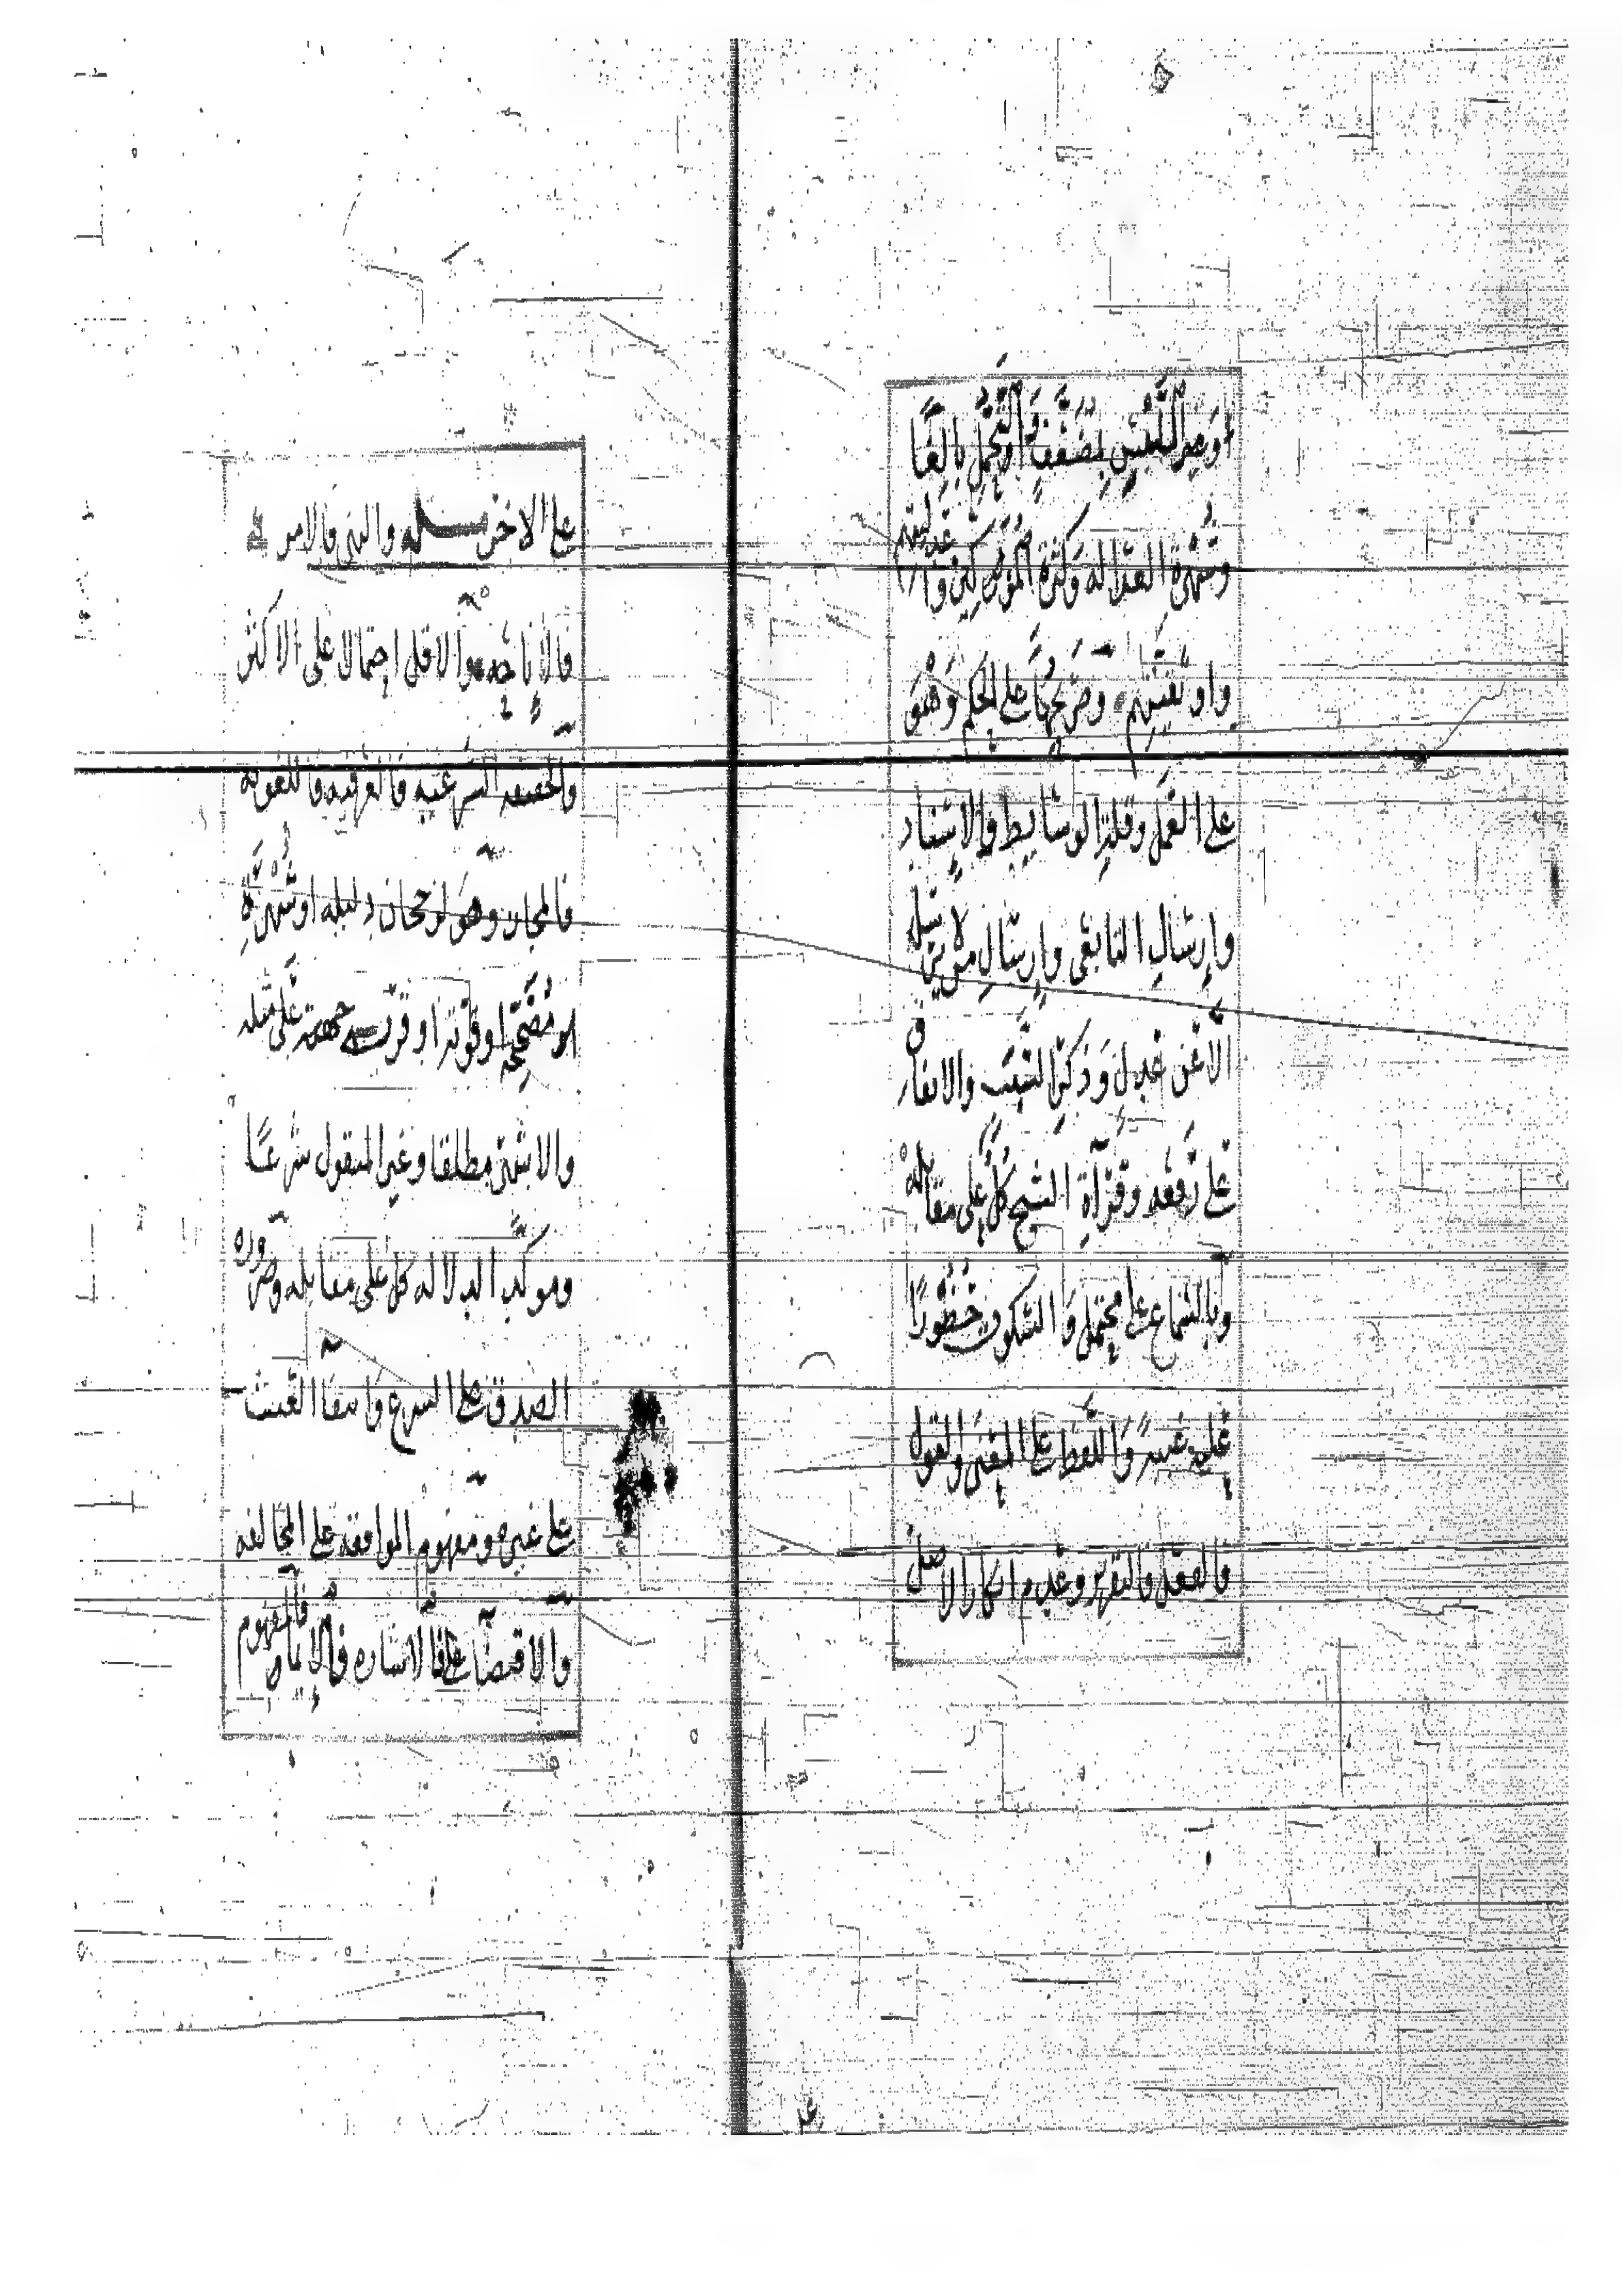 او غير الملتبس بضعف والتحمل بالغا
وشهرة العدالة وكثرة المزكين وا عدليتهم
واوثقيتهم وصريحها على الحكم وهو
على العمل وقلة الوسائط فالاسناد
وارسال التابعي وارسال من لا يرسله
الا عن عدل وذكر السبب والاتفاق
على رفعه وقرآة الشيخ كل على مقابله
وبالسماع على محتمل والسكوت حضورا
عليه غيبة واللفظ على المعنى والقول
فالفعل فالتقرير وعدم انكار الاصل
على الاخر والنهي فالامر
فالاباحة والاقل احتمالا على الاكثر
والحقيقة الشرعية فالعرفية فاللغوية
فالمجاز وهو لرجحان دليله او شهرة
مصححه او قوته او قرب جهته على مثله
والاشهر مطلقا وغير المنقول شرعا
وموكد الدلالة كل على مقابله وضرورة
الصدق على الشرع وانتفا العبث
على غيره ومفهوم الموافقة على المخالفة
والاقتضا على الاشارة فالايما فالمفهوم